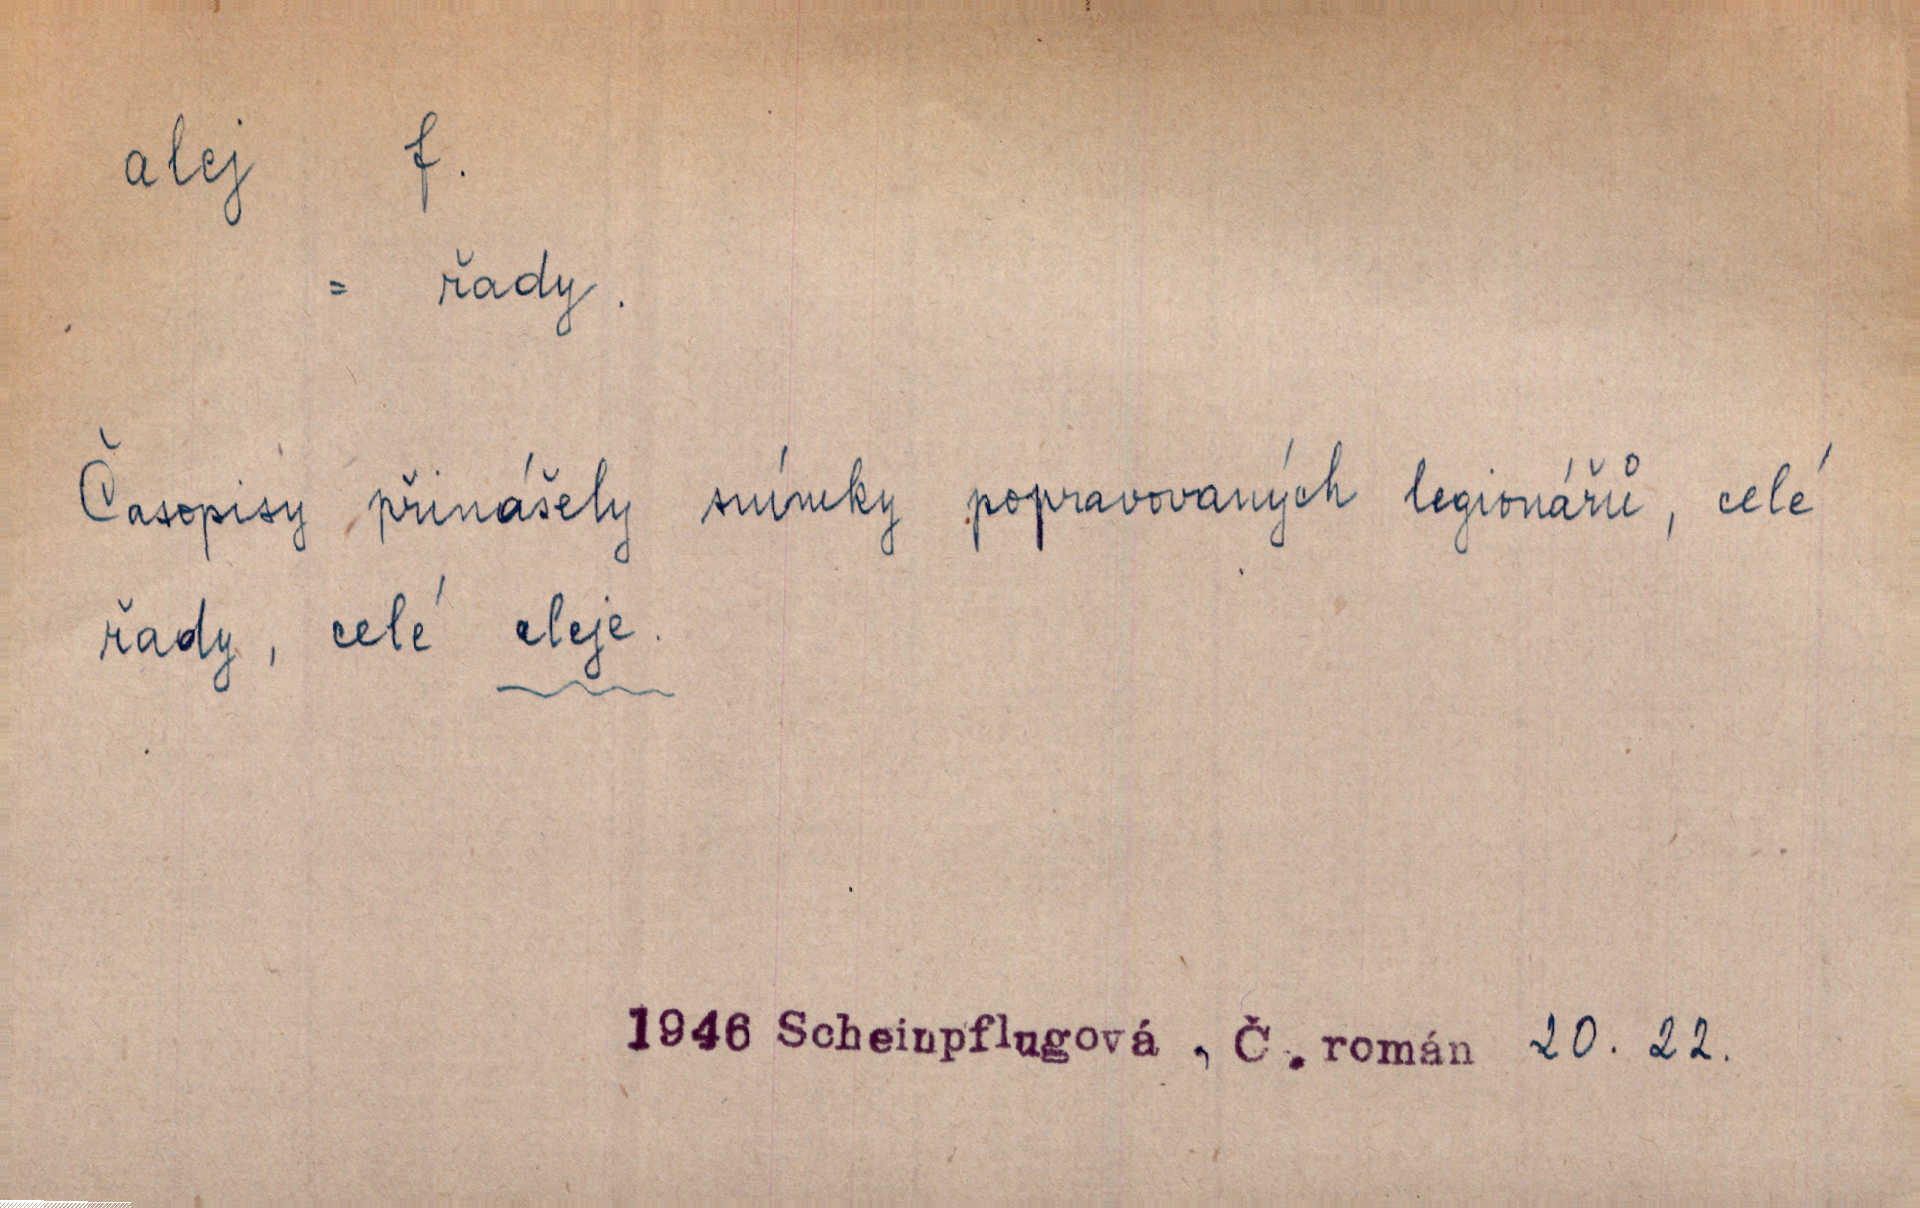 alej f.
= řady.
Časopisy přinášely snímky popravovaných legionářů, celé
řady, celé aleje.
1946 Scheinpflugová, Č. román 20. 22.